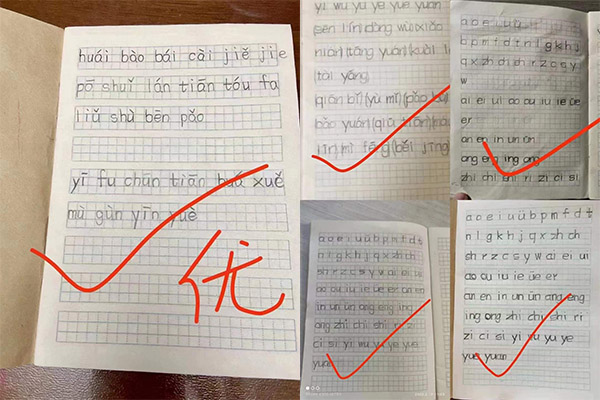 huái bào bái cài jiě jie
pō shuǐ lán tiān tóu fa
liǔ shù bēn pǎo
yī fu chūn tiān huā xuě
mù gùn yīn yuè
优
yi wu yu ye yue yuan
sēn lín dòng wù xiǎo
tài yáng
qiān bǐ yù mǐ
a o e i u ü
b p m f d t n l g k h j
q x zh ch sh r z c s y
w
ai ei ui ao ou iu ie üe
er
an en in un ün
ang eng ing ong
zhi chi shi ri zi ci si
a o e i u ü b p m f d t
n l g k h j q x zh ch
sh r z c s y w ai ei ui
ao ou iu ie üe er an en
in un ün ang eng ing
ong zhi chi shi ri zi
ci si yi wu yu ye yue
yuan
a o e i u ü b p m f d t
n l g k h j q x zh ch
sh r z c s y w ai ei ui
ao ou iu ie üe er
an en in un ün ang eng
ing ong zhi chi shi ri
zi ci si yi wu yu ye
yue yuan